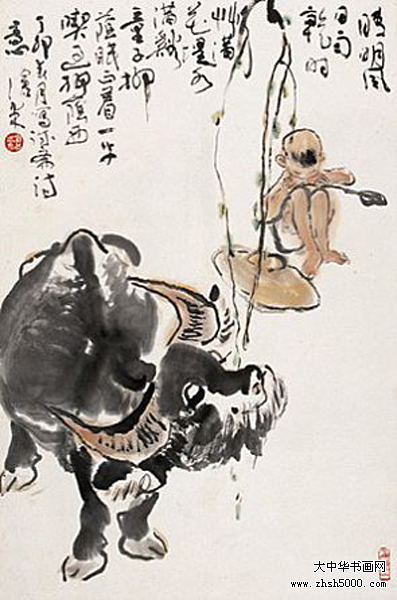 晴明風
日雨
乾时
艸满
花堤水
满谿
童子柳
蔭眠正着一牛
喫過柳蔭西
丁卯月寫诚斋诗
意
大中华书画网
www.zhsh5000.com